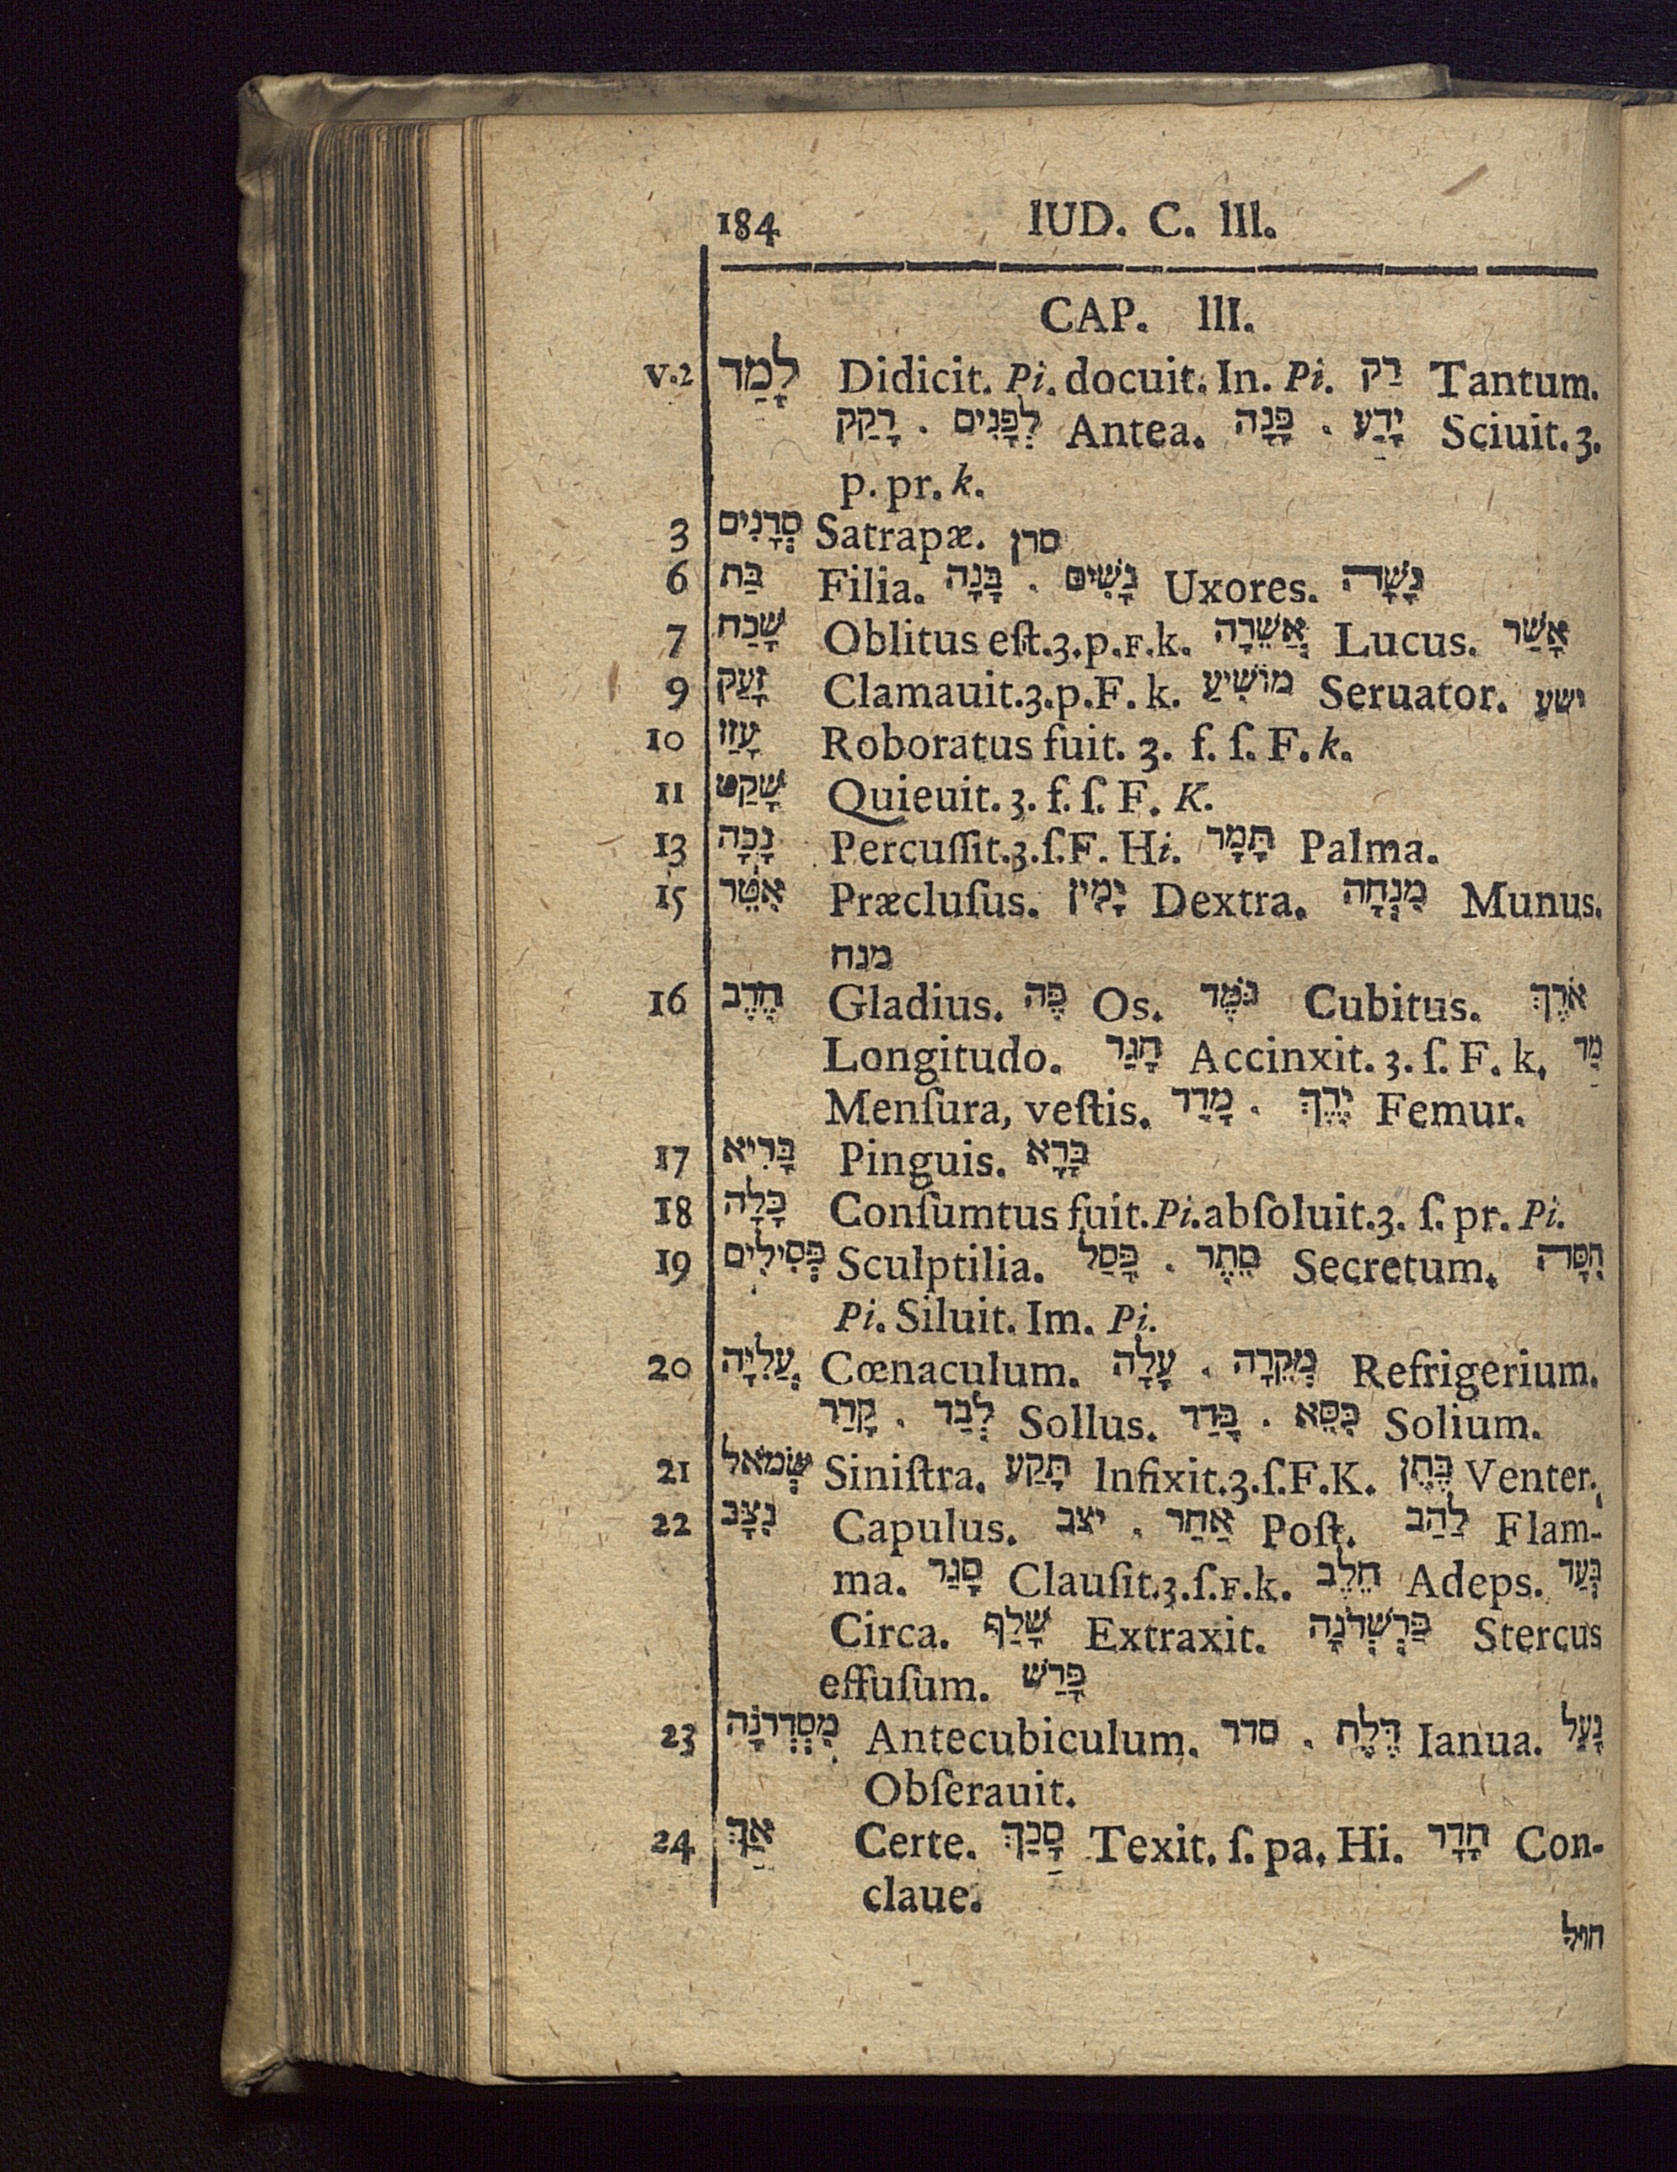 184 IUD. C. III.
CAP. III.
V.2 לָמַד Didicit. Pi. docuit. In. Pi. רַק Tantum.
רָקַק . לְפָנִים Antea. פָּנָה . יָדַע Sciuit. 3.
p. pr. k.
3 סְרָנִים Satrapæ. סרן
6 בַּת Filia. בָּנָה . נָשִׁים Uxores. נָשָׁה
7 שָׁכַח Oblitus eſt. 3. p. F. k. אֲשֵׁרָה Lucus. אָשַׁר
9 זָעַק Clamauit. 3. p. F. k. מוֹשִׁיעַ Seruator. ישע
10 עָזַז Roboratus fuit. 3. f. ſ. F. k.
11 שָׁקַט Quieuit. 3. f. ſ. F. K.
13 נָכָה Percuſſit. 3. ſ. F. Hi. תָּמָר Palma.
15 אִטֵּר Præcluſus. יָמִין Dextra. מִנְחָה Munus.
מנח
16 חֶרֶב Gladius. פֶּה Os. גֹּמֶד Cubitus. אֹרֶךְ
Longitudo. חָגַר Accinxit. 3. ſ. F. k. מַד
Menſura, veſtis. מָדַד . יָרֵךְ Femur.
17 בָּרִיא Pinguis. בָּרָא
18 כָּלָה Conſumtus fuit. Pi. abſoluit. 3. ſ. pr. Pi.
19 פְּסִילִים Sculptilia. פָּסַל . סֵתֶר Secretum. הָסָה
Pi. Siluit. Im. Pi.
20 עֲלִיָּה Cœnaculum. עָלָה . מְקֵרָה Refrigerium.
קָרַר . לְבַד Sollus. בָּדַד . כִּסֵּא Solium.
21 שְׂמֹאל Siniſtra. תָּקַע Infixit. 3. ſ. F. K. בֶּטֶן Venter.
22 נִצָּב Capulus. יצב . אַחַר Poſt. לַהַב Flam-
ma. סָגַר Clauſit. 3. ſ. F. k. חֵלֶב Adeps. בְּעַד
Circa. שָׁלַף Extraxit. פַּרְשְׁדֹנָה Stercus
effuſum. פָּרַשׁ
23 מִסְדְּרֹנָה Antecubiculum. סדר . דֶּלֶת Ianua. נָעַל
Obſerauit.
24 אַךְ Certe. סָכַךְ Texit. ſ. pa. Hi. חָדָר Con-
claue.
חול